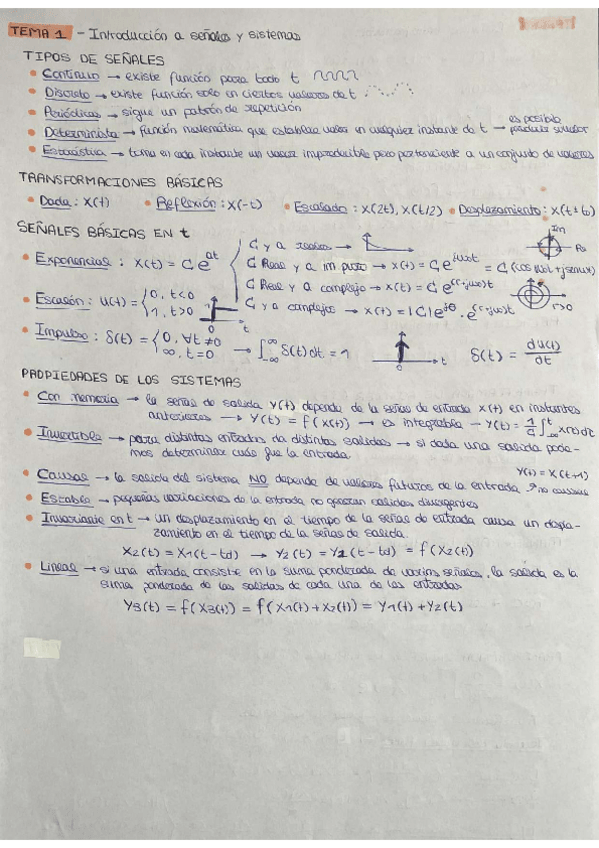 TEMA 1 - Introducción a señales y sistemas
TIPOS DE SEÑALES
• Continuo → existe función para todo t
• Discreto → existe función solo en ciertos valores de t
• Periódicas → sigue un patrón de repetición
• Determinista → función matemática que establece valor en cualquier instante de t → es posible predecir
• Estocástica → toma en cada instante un valor impredecible pero perteneciente a un conjunto de valores
TRANSFORMACIONES BÁSICAS
• Dada : x(t) • Reflexión : x(-t) • Escalado : x(2t), x(t/2) • Desplazamiento : x(t ± t₀)
SEÑALES BÁSICAS EN t
Im
Re
C y a reales →
• Exponencial : x(t) = C e^at
C Real y a im puro → x(t) = C e^jω₀t = C (cos ω₀t + j sen ω₀t)
C Real y a complejo → x(t) = C e^(r+jω₀)t
r>0
C y a complejos → x(t) = |C| e^jθ · e^(r+jω₀)t
• Escalón : u(t) = { 0, t<0
1, t>0
0 t
• Impulso : δ(t) = { 0, ∀t ≠0
∞, t=0 → ∫-∞^∞ δ(t)dt = 1
0 t
δ(t) = du(t)/dt
PROPIEDADES DE LOS SISTEMAS
• Con memoria → la señal de salida y(t) depende de la señal de entrada x(t) en instantes
anteriores → y(t) = f(x(t)) → es integrable → y(t) = 1/a ∫-∞^t x(τ)dτ
• Invertible → para distintas entradas da distintas salidas → si dada una salida pode-
mos determinar cuál fue la entrada.
y(t) = x(t+1)
• Causal → la salida del sistema NO depende de valores futuros de la entrada → no causal
• Estable → pequeñas variaciones de la entrada no generan salidas divergentes
• Invariante en t → un desplazamiento en el tiempo de la señal de entrada causa un despla-
zamiento en el tiempo de la señal de salida.
x2(t) = x1(t - td) → y2(t) = y1(t - td) = f(x2(t))
• Lineal → si una entrada consiste en la suma ponderada de varias señales, la salida es la
suma ponderada de las salidas de cada una de las entradas
y3(t) = f(x3(t)) = f(x1(t) + x2(t)) = y1(t) + y2(t)